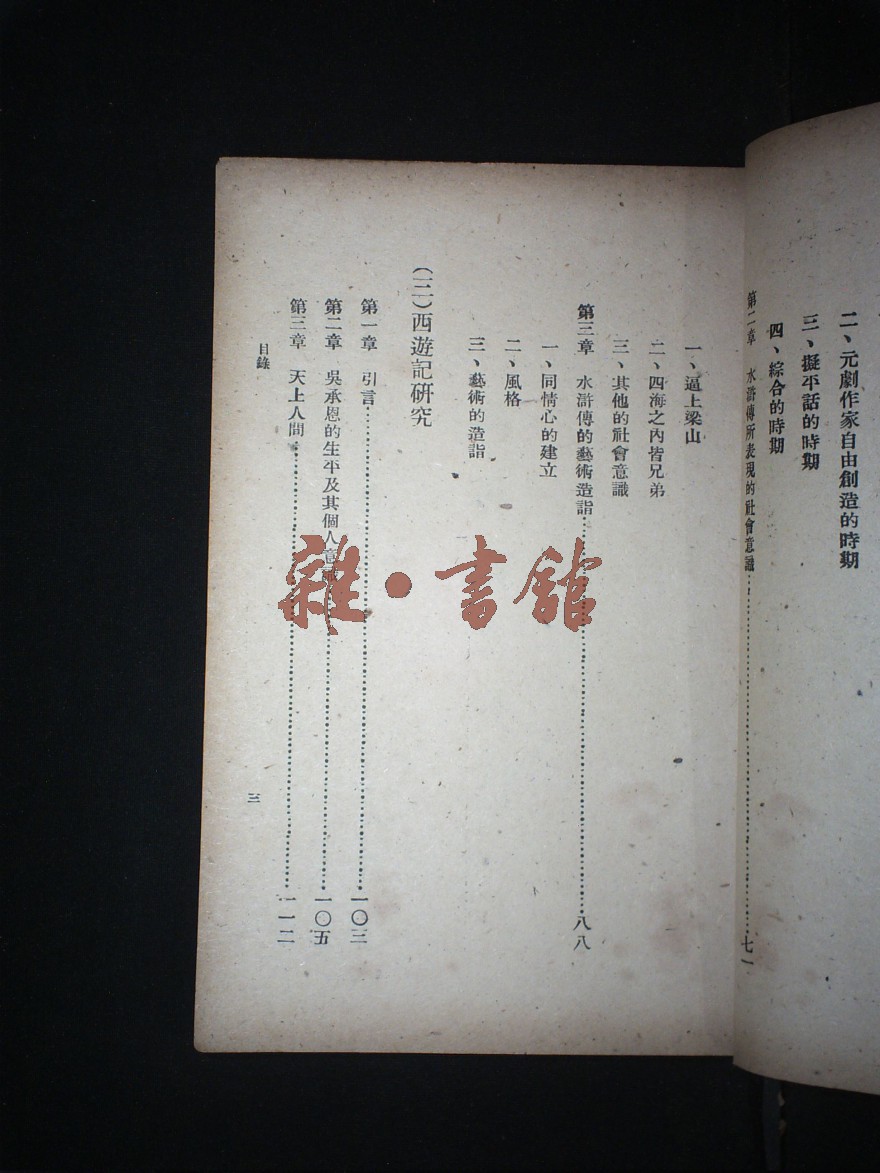 二、元劇作家自由創造的時期
三、擬平話的時期
四、綜合的時期
第二章 水滸傳所表現的社會意識……七一
一、逼上梁山
二、四海之內皆兄弟
三、其他的社會意識
第三章 水滸傳的藝術造詣……八八
一、同情心的建立
二、風格
三、藝術的造詣
(三)西遊記研究
第一章 引言……一〇三
第二章 吳承恩的生平及其個人意識……一〇五
第三章 天上人間……一一二
目錄
三
雜·書館